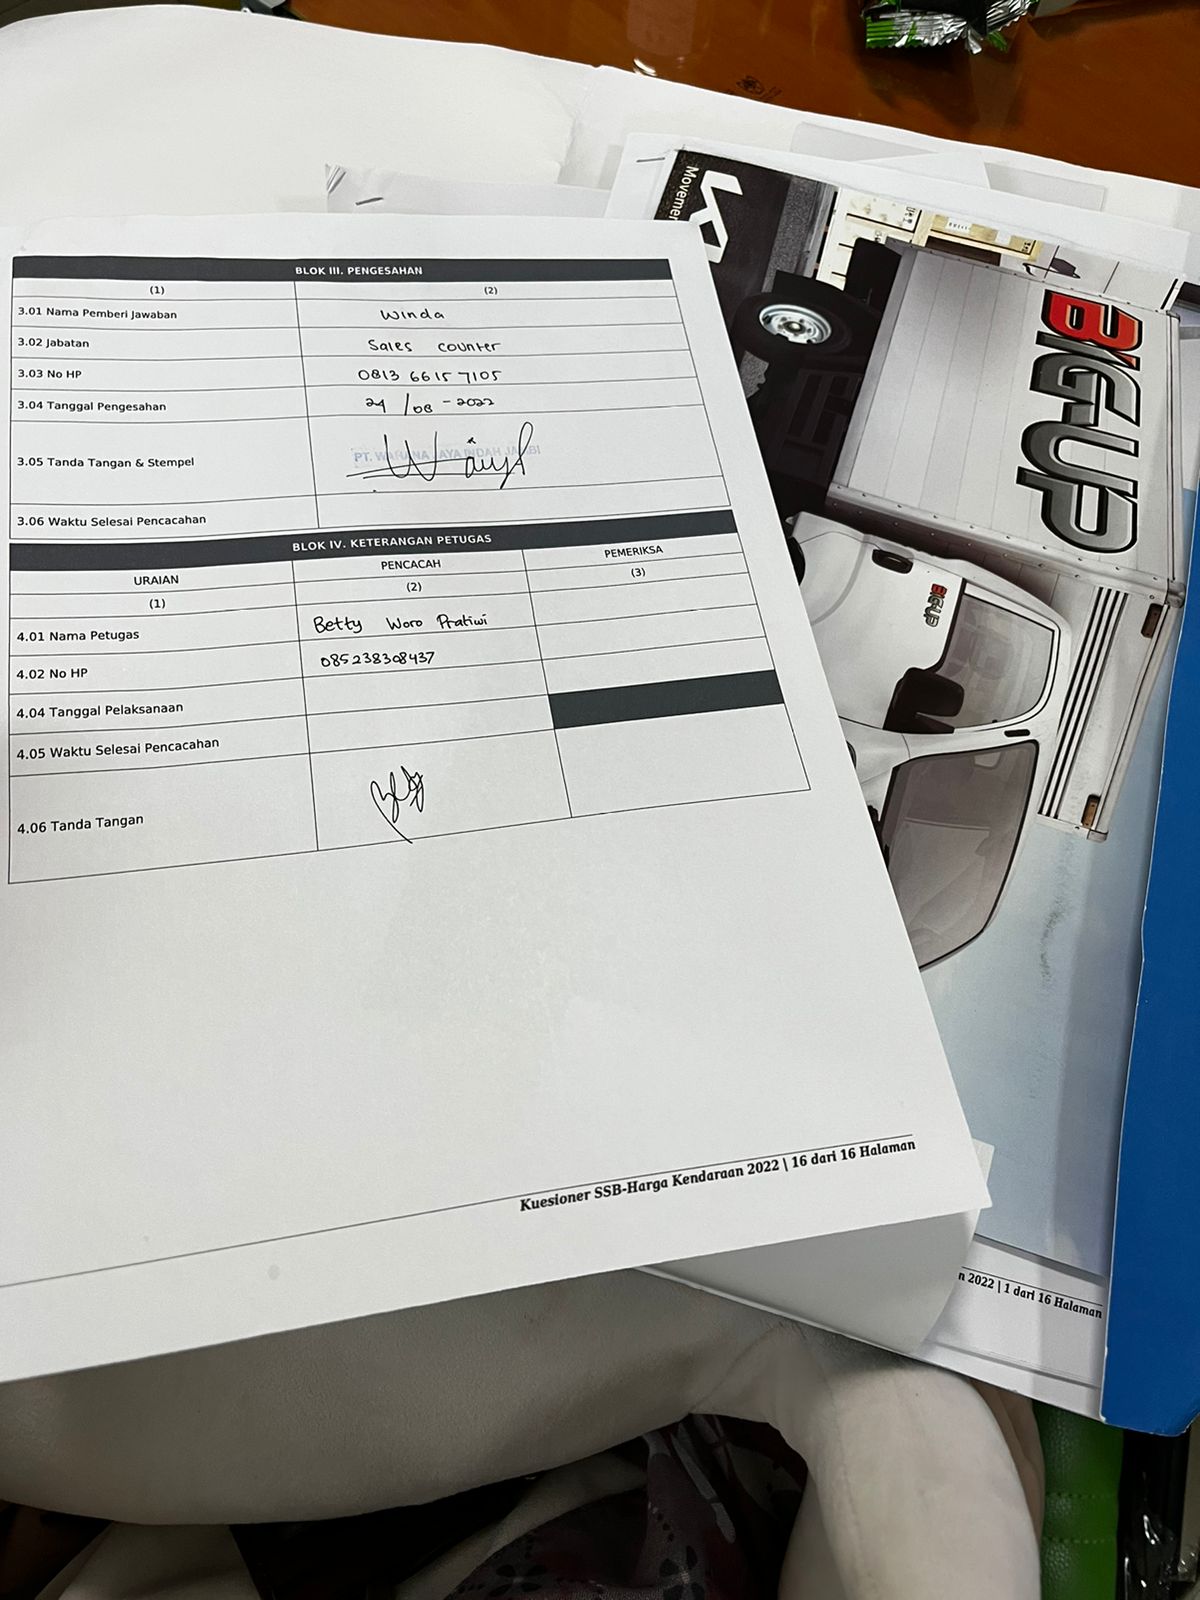 BLOK III. PENGESAHAN
(1) (2)
3.01 Nama Pemberi Jawaban Winda
3.02 Jabatan Sales counter
3.03 No HP 0813 6615 7105
3.04 Tanggal Pengesahan 24 /08 - 2022
3.05 Tanda Tangan & Stempel PT. WARANA JAYA INDAH JAMBI
3.06 Waktu Selesai Pencacahan
BLOK IV. KETERANGAN PETUGAS
URAIAN PENCACAH PEMERIKSA
(1) (2) (3)
4.01 Nama Petugas Betty Woro Pratiwi
4.02 No HP 085238308437
4.04 Tanggal Pelaksanaan
4.05 Waktu Selesai Pencacahan
4.06 Tanda Tangan
Kuesioner SSB-Harga Kendaraan 2022 | 16 dari 16 Halaman
BIGUP
BIGUP
n 2022 | 1 dari 16 Halaman